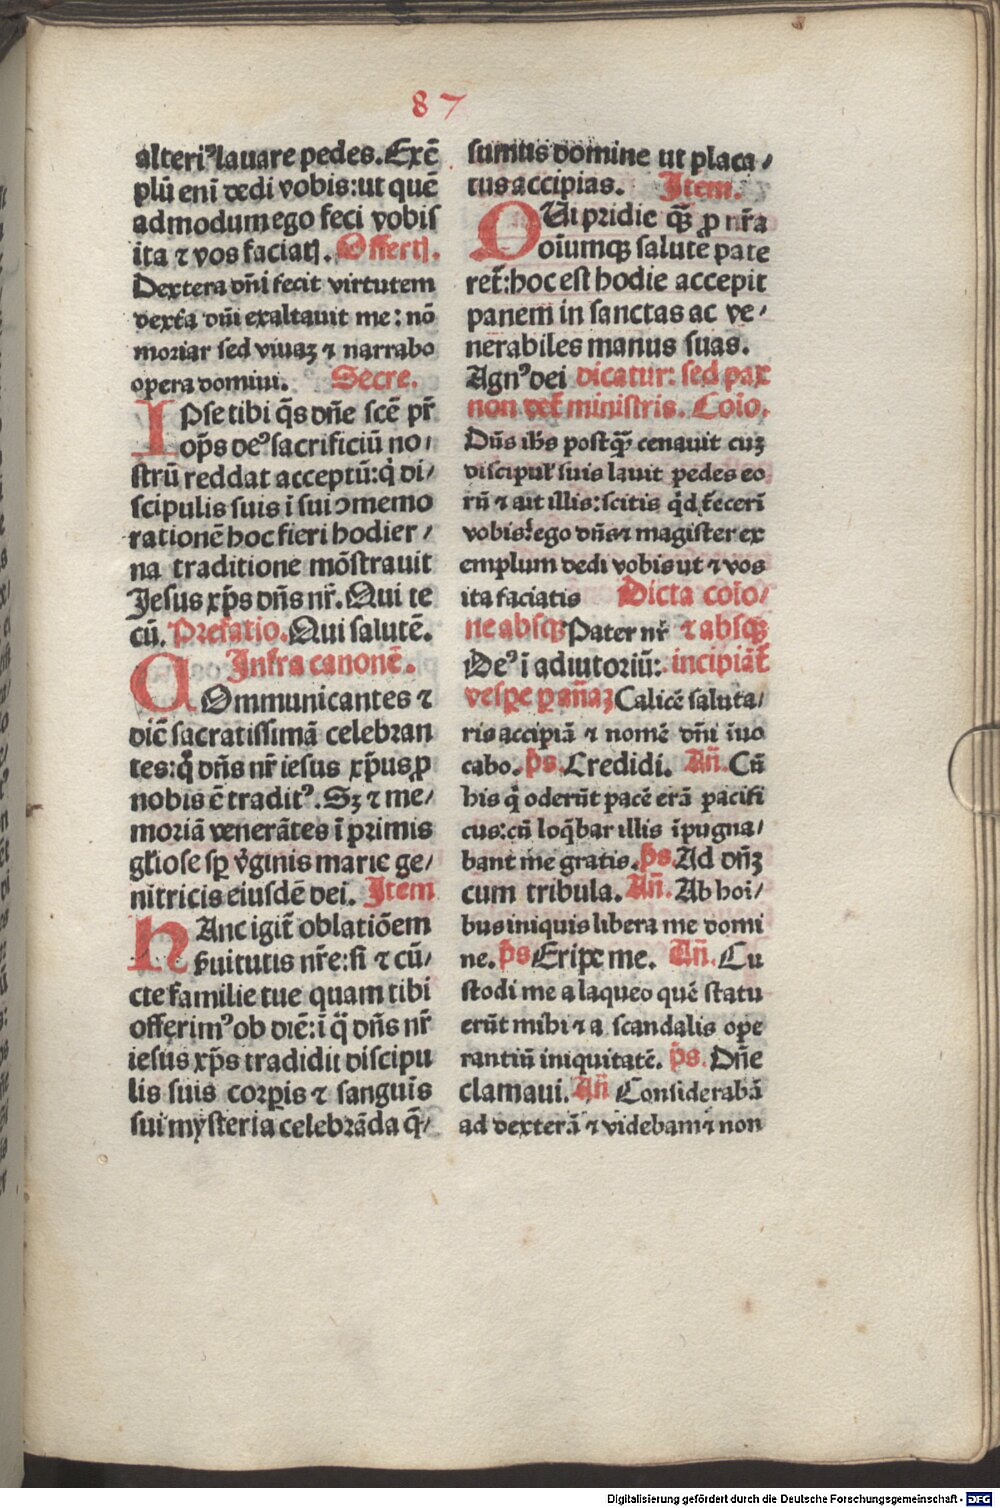 87
alteriꝰ lauare pedes. Exē
plū enī dedi vobis: ut quē
admodum ego feci vobis
ita ⁊ vos faciatꝭ. Offertꝭ.
Dextera dn̄i fecit virtutem
dext̄a dn̄i exaltauit me: nō
moriar sed viuaꝫ ⁊ narrabo
opera domini. Secre.
IPse tibi q̄s dn̄e scē pr̄
op̄s deꝰ sacrificiū no/
strū reddat acceptū: q̇ di/
scipulis suis ī sui ↄmemo
rationē hoc fieri hodier/
na traditione mōstrauit
Jesus xp̄s dn̄s nr̄. Qui te
cū. Prefatio. Qui salutē.
Infra canonē.
COmmunicantes ⁊
diē sacratissimā celebran
tes: q̇̄ dn̄s nr̄ iesus xp̄us ꝓ
nobis ē traditꝰ. Sꝫ ⁊ me/
moriā venerātes ī primis
gl̄iose sꝑ v̇ginis marie ge/
nitricis eiusdē dei. Item
HAnc igit̄ oblatiōem
ẜuitutis nr̄e: si ⁊ cū/
cte familie tue quam tibi
offerimꝰ ob diē: ī q̇̄ dn̄s nr̄
iesus xp̄s tradidit discipu
lis suis corꝑis ⁊ sanguis
sui mysteria celebrāda q̄/
sumus domine ut placa/
tus accipias. Item.
QUi pridie q̄ꝫ ꝓ nr̄a
oīumqꝫ salute pate
ret̄: hoc est hodie accepit
panem in sanctas ac ve/
nerabiles manus suas.
Agnꝰ dei dicatur: sed pax
non det̄ ministris. Coīo.
Dn̄s ih̄s postq̄ꝫ cenauit cuꝫ
discipul̄ suis lauit pedes eo
rū ⁊ ait illis: scitis q̇d fecerī
vobis: ego dn̄s ⁊ magister ex
emplum dedi vobis ut ⁊ vos
ita faciatis Dicta coīo/
ne absqꝫ Pater nr̄ ⁊ absqꝫ
Deꝰ ī adiutoriū: incipiāt̄
vesꝑe ꝑ añaꝫ Calicē saluta/
ris accipiā ⁊ nomē dn̄i īuo
cabo. p̄s. Credidi. An̄. Cū
his q̇ oderūt pacē erā pacifi
cus: cū loq̄bar illis īpugna/
bant me gratis. p̄s. Ad dn̄ꝫ
cum tribula. An̄. Ab hoi/
bus iniquis libera me domi
ne. p̄s Eripe me. An̄. Cu
stodi me a laqueo quē statu
erūt mihi ⁊ a scandalis ope
rantiū iniquitatē. p̄s. Dn̄e
clamaui. An̄ Considerabā
ad dexterā ⁊ videbam ⁊ non
Digitalisierung gefördert durch die Deutsche Forschungsgemeinschaft - DFG